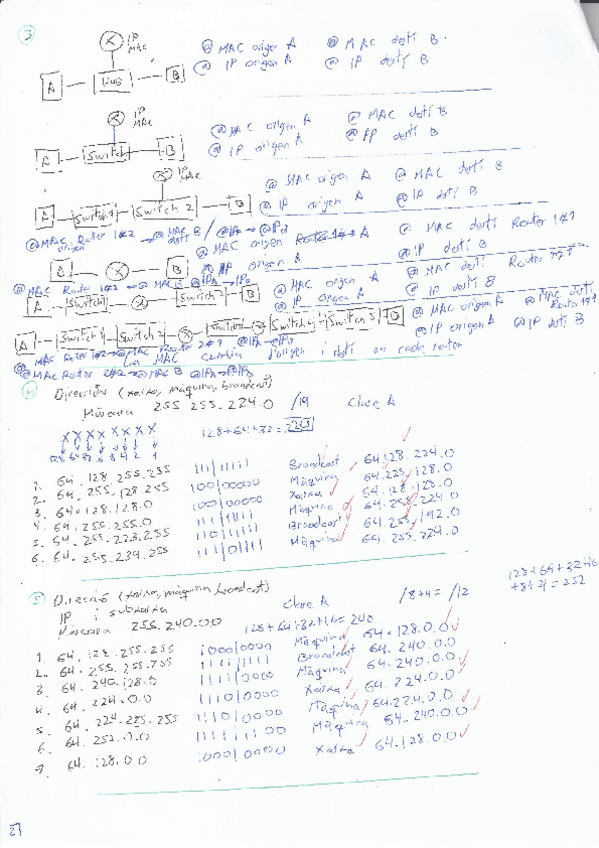 3
IP
MAC
@ MAC origen A @ MAC desti B
A HUB B @ IP origen A @ IP desti B
IP
MAC
@ MAC origen A @ MAC desti B
A Switch B @ IP origen A @ IP desti B
IP
MAC
@ MAC origen A @ MAC desti B
A Switch 1 Switch 2 B @ IP origen A @ IP desti B
@ MAC Router 1#2
origen
@ MAC origen A @ MAC desti Router 1#1
A B @ IP origen A @ IP desti B
@ MAC Router 1#2 @ MAC B @IPA @IPB
@ MAC origen A @ MAC desti Router 1#1
A Switch 1 Switch 2 B @ IP origen A @ IP desti B
@ MAC origen A @ MAC desti Router 1#1
A Switch 1 Switch 2 Switch 4 Switch 5 B @ IP origen A @ IP desti B
MAC cambia d'origen i desti en cada router
@ MAC Router 2#2 @ MAC B @IPA @IPB
4 Direcció (xarxa, màquina, broadcast)
Màscara 255.255.224.0 /19 Clase A
X X X X X X X X
128 64 32 16 8 4 2 1
128+64+32=
1. 64.128.255.255 Broadcast 64.128.224.0
2. 64.255.128.255 100|00000 Màquina 64.225.128.0
3. 64.128.128.0 100|00000 Xarxa 64.128.128.0
4. 64.255.255.0 111|11111 Màquina 64.255.224.0
5. 64.255.223.255 110|11111 Broadcast 64.255.192.0
6. 64.255.239.255 111|01111 Màquina 64.255.224.0
5 Direcció (xarxa, màquina, broadcast)
IP i subxarxa Clase A /8+4= /12
Màscara 255.240.0.0 128+64+32+16=240
128+64+32+16
+8+4=252
1. 64.128.255.255 1000|0000 Màquina 64.128.0.0
2. 64.255.255.255 1111|1111 Broadcast 64.240.0.0
3. 64.240.128.0 1111|0000 Màquina 64.240.0.0
4. 64.224.0.0 1110|0000 Xarxa 64.224.0.0
5. 64.224.255.255 1110|0000 Màquina 64.224.0.0
6. 64.252.0.0 1111|1100 Màquina 64.240.0.0
7. 64.128.0.0 1000|0000 Xarxa 64.128.0.0
27